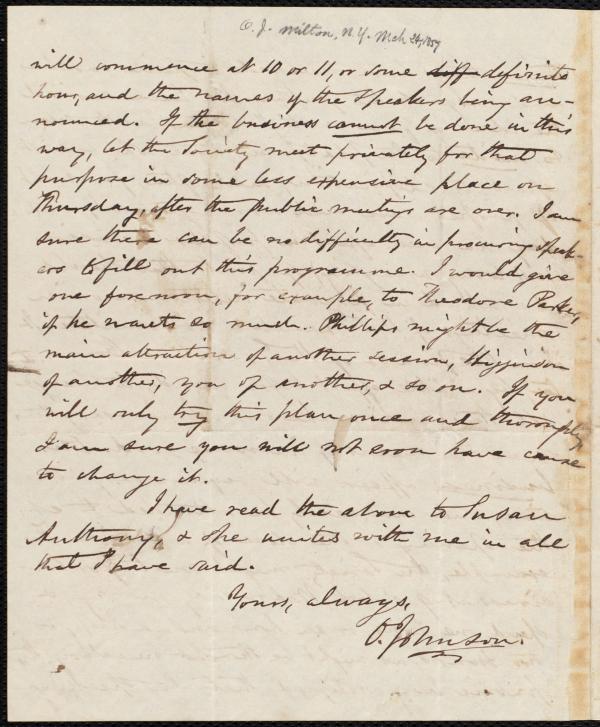 O. J. Milton, N.Y. Mch 24, 1857
will commence at 10 or 11, or some diff definite
hour, and the names of the speakers being an-
nounced. If the business cannot be done in this
way, let the Society meet privately for that
purpose in some less expensive place on
Thursday, after the public meetings are over. I am
sure there can be no difficulty in procuring speak-
ers to fill out this programme. I would give
one forenoon, for example, to Theodore Parker,
if he wants so much. Phillips might be the
main attraction of another session, Higginson
of another, you of another, & so on. If you
will only try this plan once and thoroughly
I am sure you will not soon have cause
to change it.
I have read the above to Susan
Anthony, & she unites with me in all
that I have said.
Yours, always,
O. Johnson.